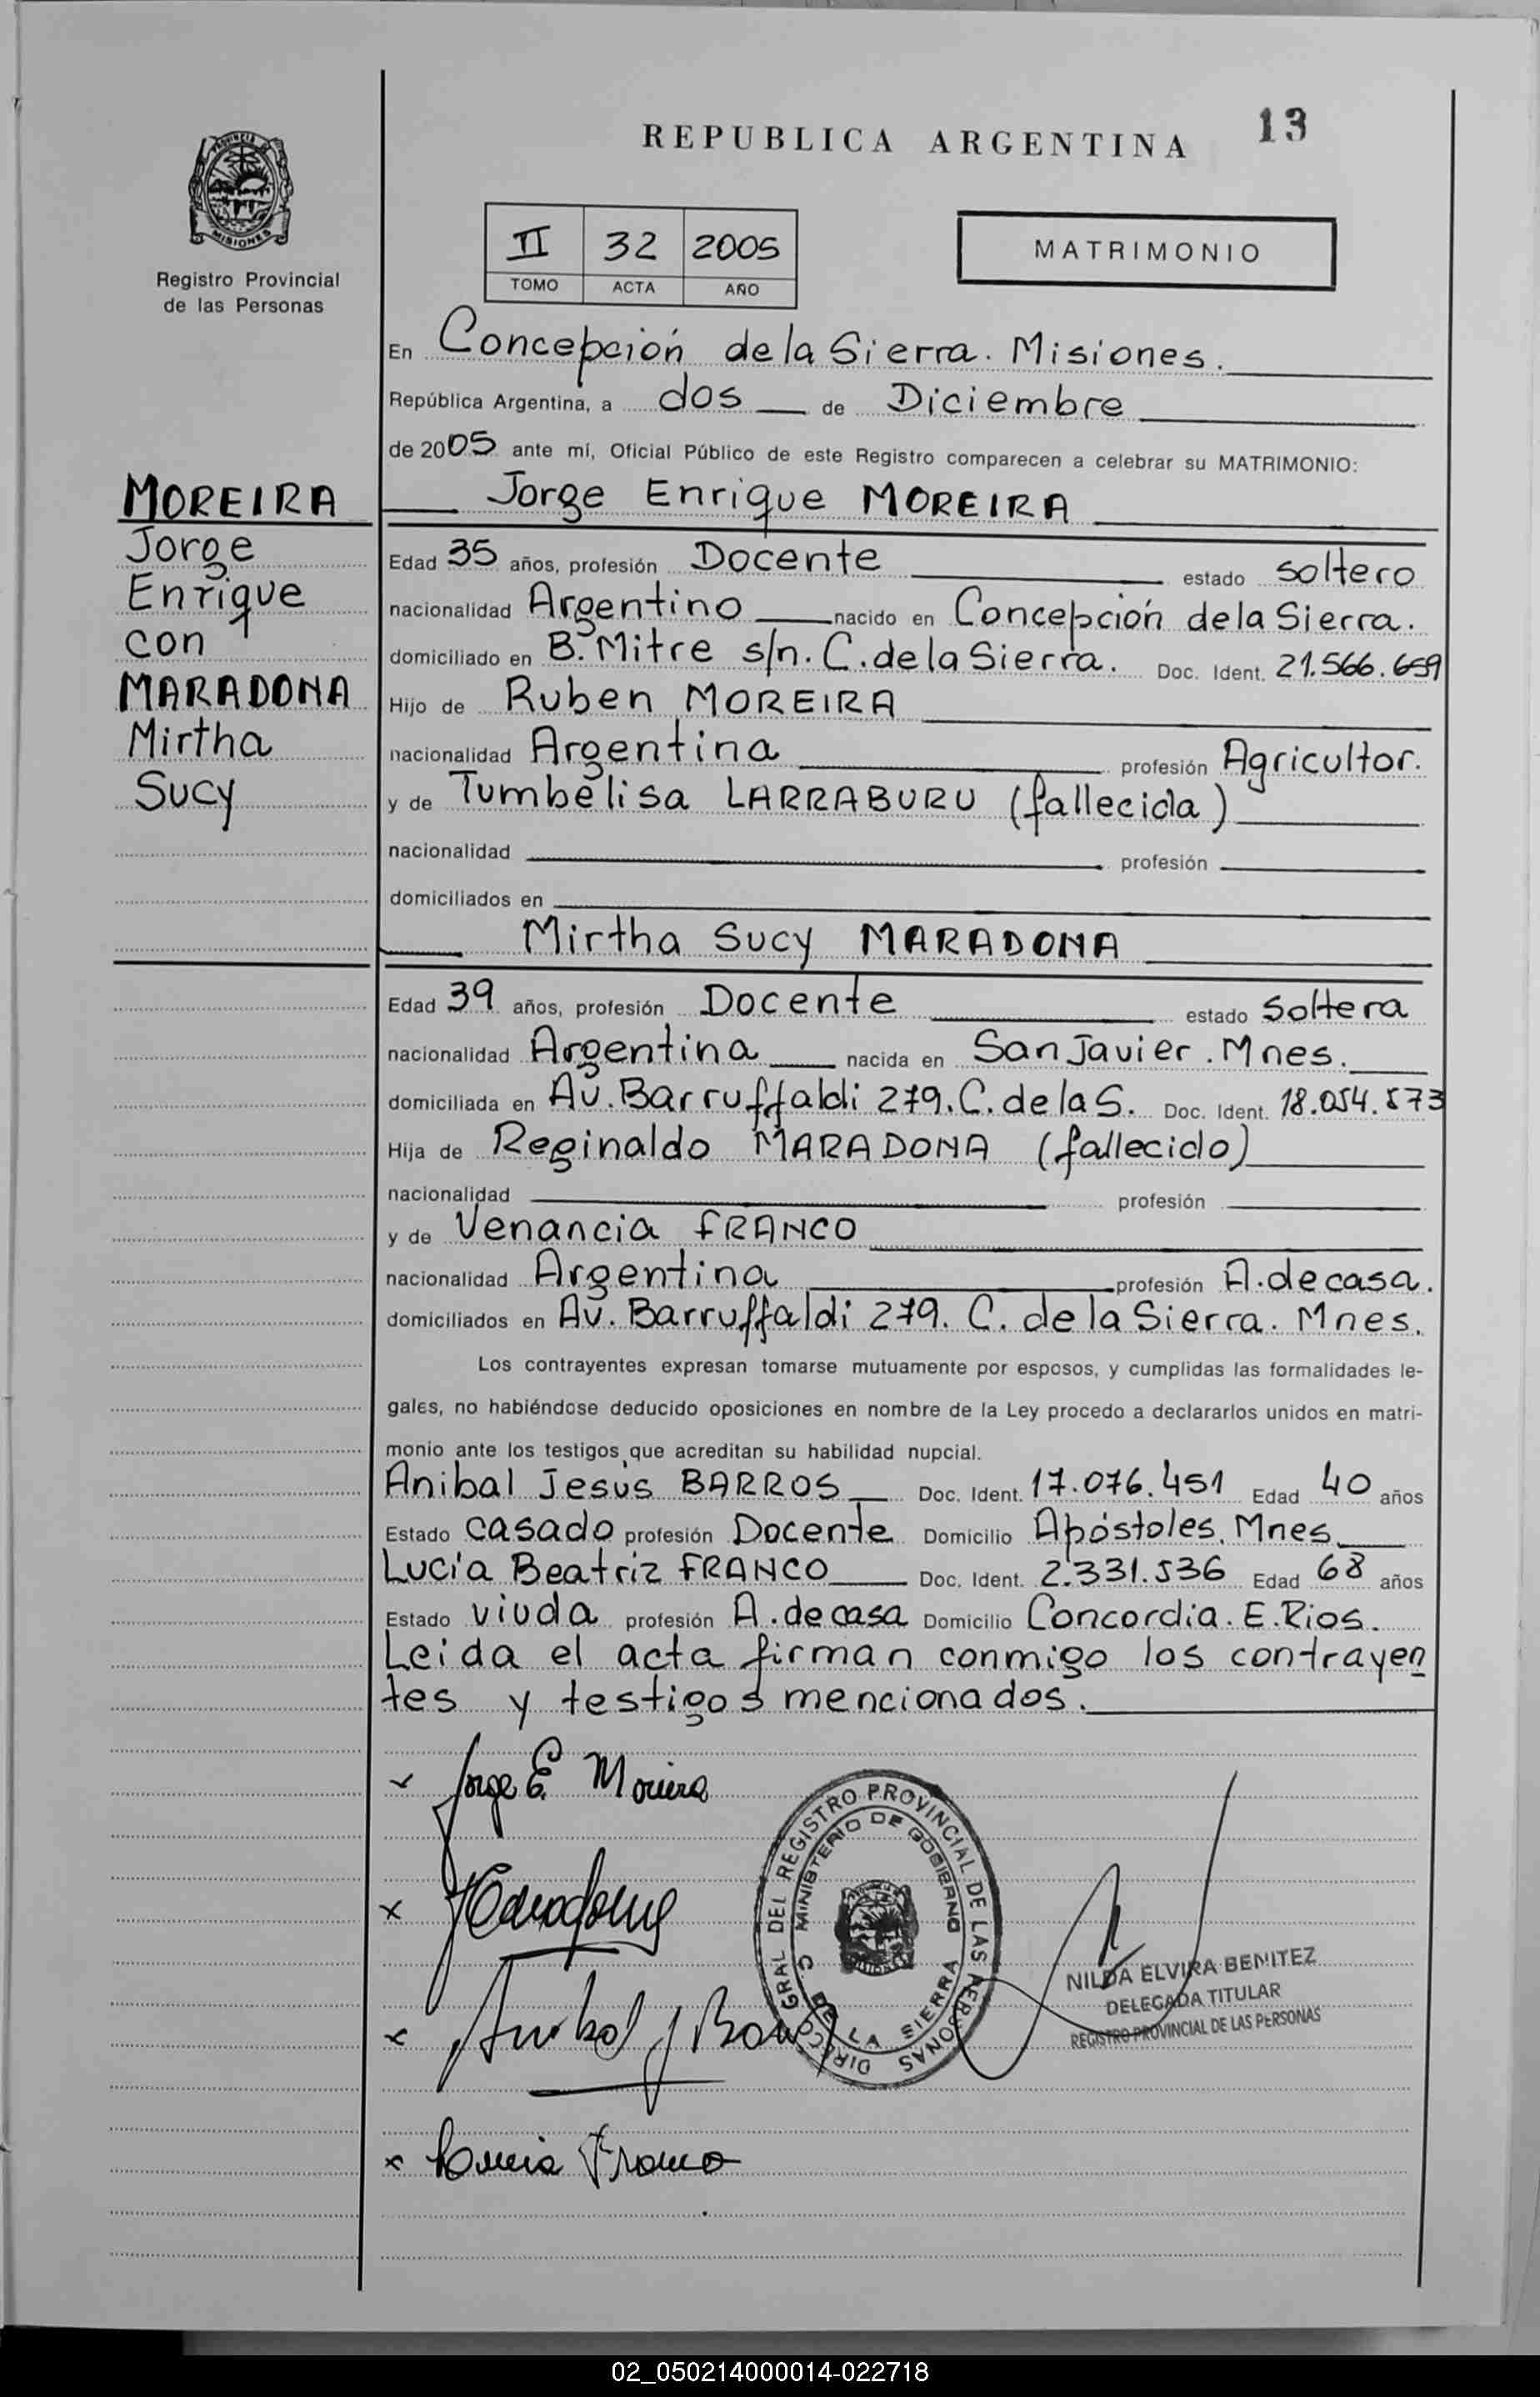 REPUBLICA ARGENTINA
13
PROVINCIA
MISIONES
Registro Provincial
de las Personas
II 32 2005
TOMO ACTA AÑO
MATRIMONIO
En Concepción de la Sierra. Misiones.
República Argentina, a dos de Diciembre
de 2005 ante mí, Oficial Público de este Registro comparecen a celebrar su MATRIMONIO:
MOREIRA
Jorge
Enrique
con
MARADONA
Mirtha
Sucy
Jorge Enrique MOREIRA
Edad 35 años, profesión Docente estado soltero
nacionalidad Argentino nacido en Concepción de la Sierra.
domiciliado en B. Mitre s/n. C. de la Sierra. Doc. Ident. 21.566.659
Hijo de Ruben MOREIRA
nacionalidad Argentina profesión Agricultor.
y de Tumbelisa LARRABURU (fallecida)
nacionalidad profesión
domiciliados en
Mirtha Sucy MARADONA
Edad 39 años, profesión Docente estado soltera
nacionalidad Argentina nacida en San Javier. Mnes.
domiciliada en Av. Barruffaldi 279. C. de la S. Doc. Ident. 18.054.573
Hija de Reginaldo MARADONA (fallecido)
nacionalidad profesión
y de Venancia FRANCO
nacionalidad Argentina profesión A. de casa.
domiciliados en Av. Barruffaldi 279. C. de la Sierra. Mnes.
Los contrayentes expresan tomarse mutuamente por esposos, y cumplidas las formalidades le-
gales, no habiéndose deducido oposiciones en nombre de la Ley procedo a declararlos unidos en matri-
monio ante los testigos que acreditan su habilidad nupcial.
Anibal Jesús BARROS Doc. Ident. 17.076.451 Edad 40 años
Estado casado profesión Docente Domicilio Apóstoles. Mnes.
Lucía Beatriz FRANCO Doc. Ident. 2.331.536 Edad 68 años
Estado viuda profesión A. de casa Domicilio Concordia. E. Rios.
Leida el acta firman conmigo los contrayen
tes y testigos mencionados.
x Jorge E. Moreira
x Maradona
x Anibal J Barros
x Lucia Franco
DIRECC. GRAL DEL REGISTRO PROVINCIAL DE LAS PERSONAS
MINISTERIO DE GOBIERNO
C. DE LA SIERRA
NILDA ELVIRA BENITEZ
DELEGADA TITULAR
REGISTRO PROVINCIAL DE LAS PERSONAS
02_050214000014-022718